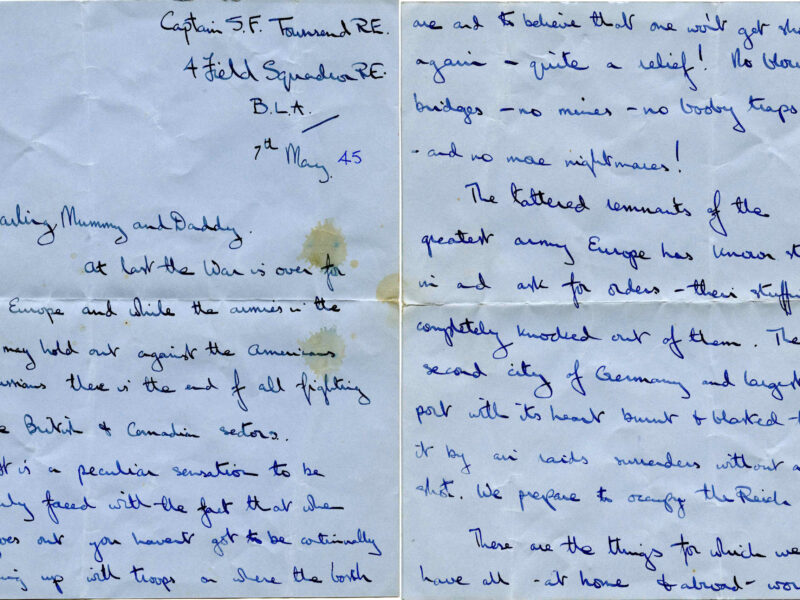 Captain S.F. Townsend RE.
4 Field Squadron RE.
B.L.A.
7th May. 45
arling Mummy and Daddy.
At last the War is over for
Europe and while the armies in the
may hold out against the Americans
ussians there is the end of all fighting
e British & Canadian sectors.
It is a peculiar sensation to be
ly faced with the fact that when
oes out you havent got to be continually
ing up with troops on where the
are and to believe that one won't get sho
again - quite a relief! No blow
bridges - no mines - no booby traps
- and no more nightmares!
The tattered remnants of the
greatest army Europe has known st
in and ask for orders - their stuffi
completely knocked out of them. The
second city of Germany and largest
port with its heart burnt & blasted
it by air raids surrenders without a
shot. We prepare to occupy the Reich
These are the things for which we
have all - at home & abroad - wor